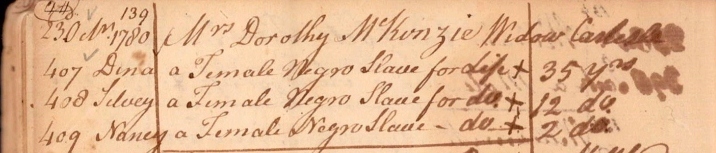 44 139
230 1780 Mrs Dorothy McKenzie Widow Carlisle
407 Dina a Female Negro Slave for Life + 35 yrs
408 Silvey a Female Negro Slave for do. + 12 do.
409 Nancy a Female Negro Slave – do. + 2 do.